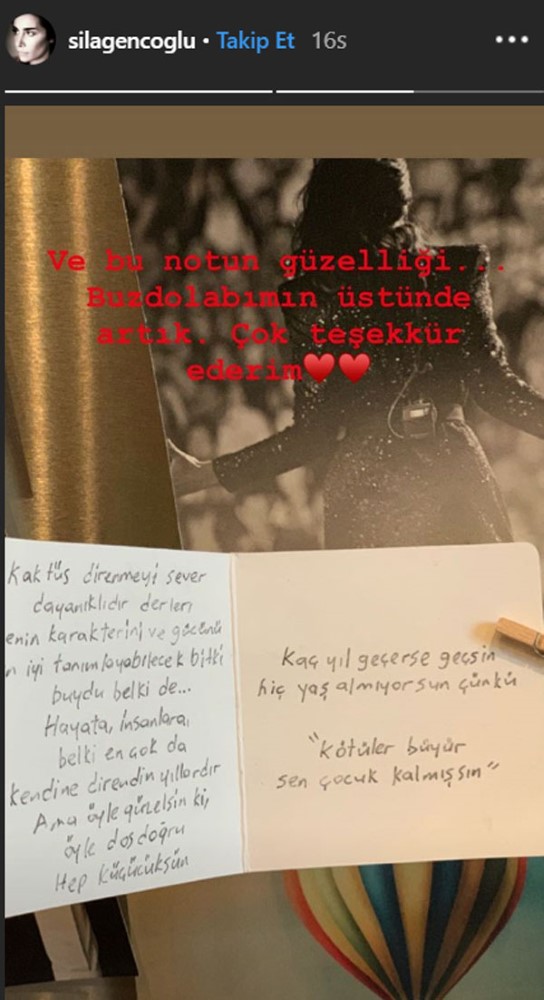 silagencoglu • Takip Et 16s
Ve bu notun güzelliği...
Buzdolabımın üstünde
artık. Çok teşekkür
ederim❤️❤️
Kaktüs direnmeyi sever
dayanıklıdır derler,
enin karakterini ve gücünü
n iyi tanımlayabilecek bitki
buydu belki de...
Hayata, insanlara,
belki en çok da
kendine direndin yıllardır
Ama öyle güzelsin ki,
öyle dosdoğru
Hep küçücüksün
Kaç yıl geçerse geçsin
hiç yaş almıyorsun çünkü
"Kötüler büyür
sen çocuk kalmışsın"